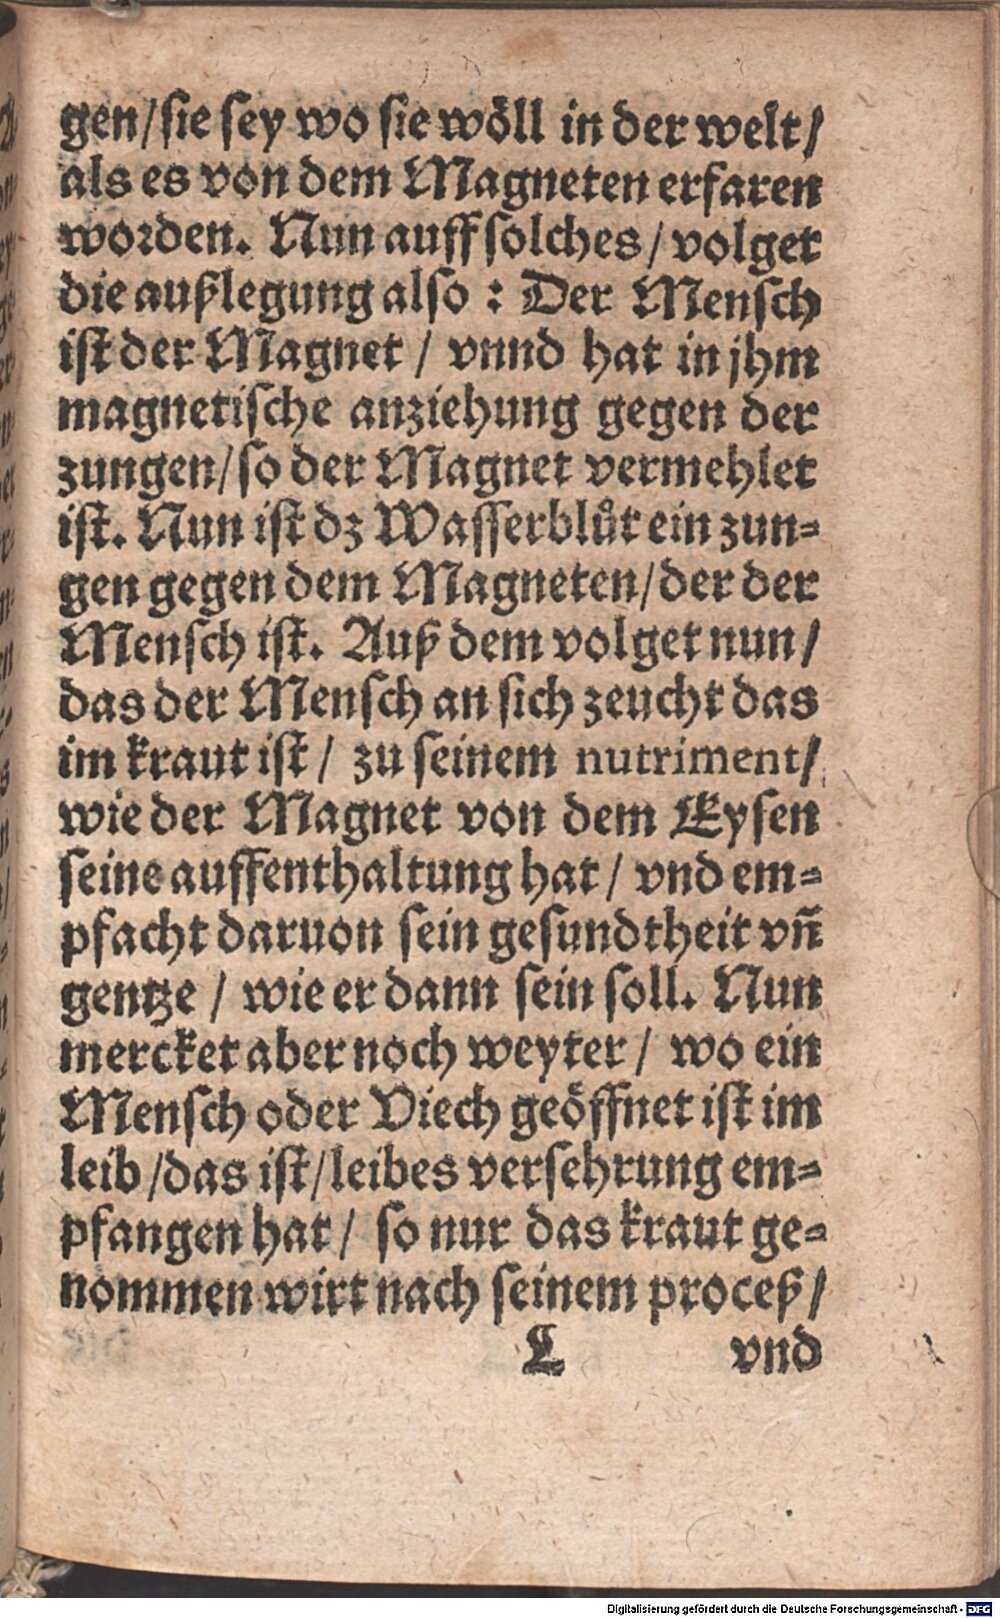 gen/ sie sey wo sie wöll in der welt/
als es von dem Magneten erfaren
worden. Nun auff solches/ volget
die außlegung also : Der Mensch
ist der Magnet / vnnd hat in jhm
magnetische anziehung gegen der
zungen/ so der Magnet vermehlet
ist. Nun ist dz Wasserblůt ein zun-
gen gegen dem Magneten/ der der
Mensch ist. Auß dem volget nun/
das der Mensch an sich zeucht das
im kraut ist / zu seinem nutriment/
wie der Magnet von dem Eysen
seine auffenthaltung hat / vnd em-
pfacht daruon sein gesundtheit vñ
gentze / wie er dann sein soll. Nun
mercket aber noch weyter / wo ein
Mensch oder Viech geöffnet ist im
leib / das ist / leibes versehrung em-
pfangen hat / so nur das kraut ge-
nommen wirt nach seinem proceß /
L vnd
Digitalisierung gefördert durch die Deutsche Forschungsgemeinschaft - DFG